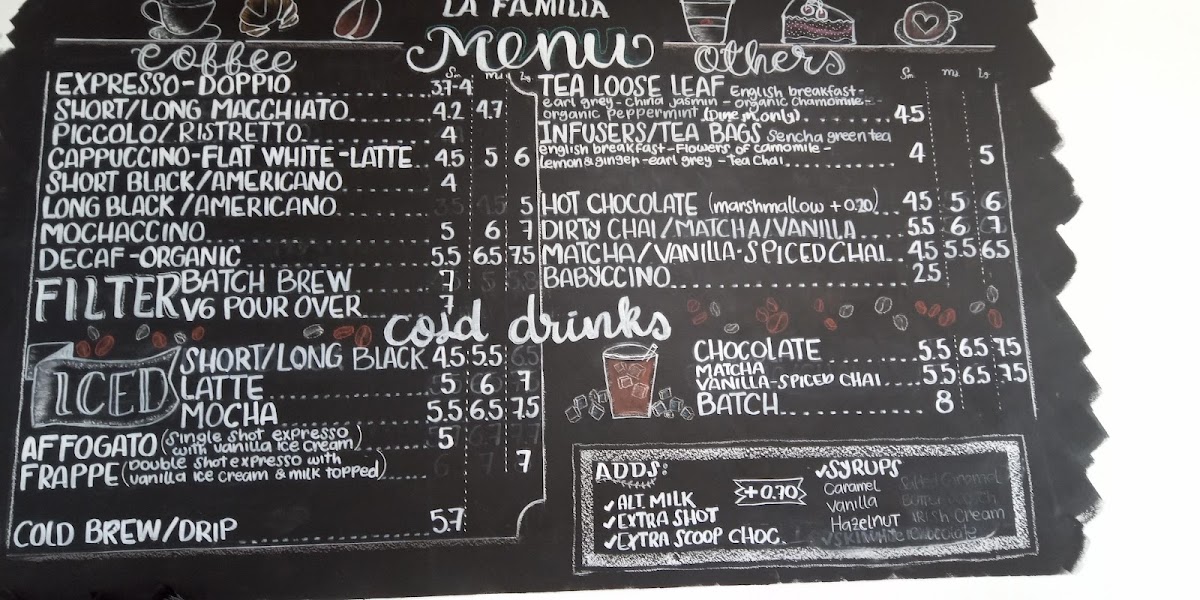 LA FAMILIA
Menu
coffee
Sm. Md. Lg.
EXPRESSO-DOPPIO 3.7-4
SHORT/LONG MACCHIATO 4.2 4.7
PICCOLO/RISTRETTO 4
CAPPUCCINO-FLAT WHITE-LATTE 4.5 5 6
SHORT BLACK/AMERICANO 4
LONG BLACK/AMERICANO 5
MOCHACCINO 5 6 7
DECAF-ORGANIC 5.5 6.5 7.5
FILTER
BATCH BREW 7
V6 POUR OVER 7
others
Sm. Md. Lg.
TEA LOOSE LEAF English breakfast-
earl grey-china jasmin-organic chamomile-
organic peppermint (Dine in only) 4.5
INFUSERS/TEA BAGS sencha green tea
english breakfast-Flowers of camomile-
lemon&ginger-earl grey-Tea Chai 4 5
HOT CHOCOLATE (marshmallow +0.20) 4.5 5 6
DIRTY CHAI/MATCHA/VANILLA 5.5 6 7
MATCHA/VANILLA-SPICED CHAI 4.5 5.5 6.5
BABYCCINO 2.5
cold drinks
ICED
SHORT/LONG BLACK 4.5 5.5
LATTE 5 6 7
MOCHA 5.5 6.5 7.5
AFFOGATO (single shot expresso
with vanilla ice cream) 5
FRAPPE (Double shot expresso with
vanilla ice cream & milk topped) 7
COLD BREW/DRIP 5.7
CHOCOLATE 5.5 6.5 7.5
MATCHA
VANILLA-SPICED CHAI 5.5 6.5 7.5
BATCH 8
ADDS:
+0.70
✓ALT. MILK
✓EXTRA SHOT
✓EXTRA SCOOP CHOC.
✓SYRUPS
Caramel Salted Caramel
Vanilla
Hazelnut IRISH Cream